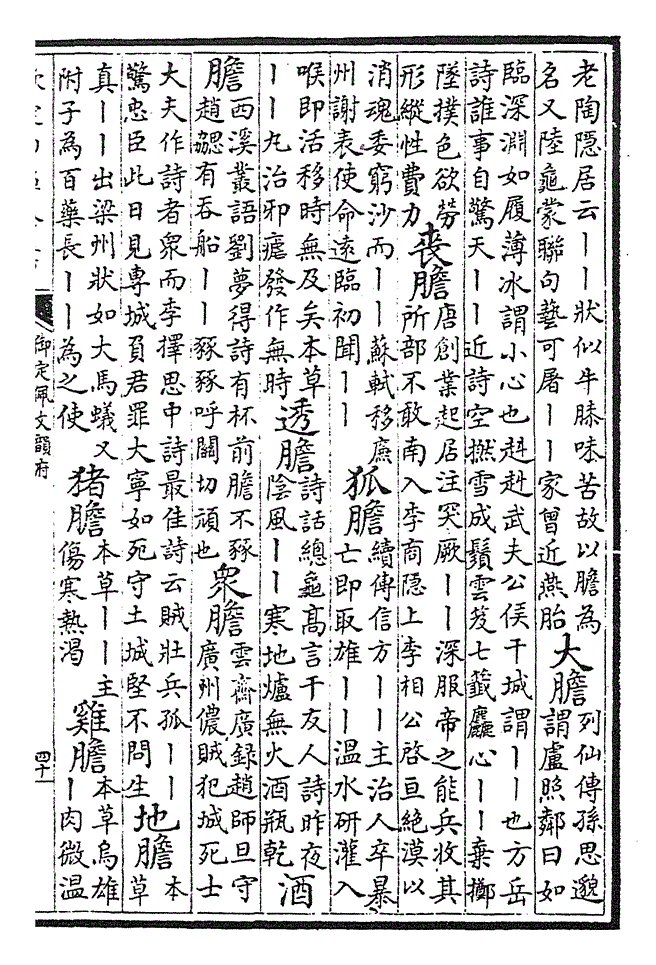 老陶隱居云丨丨狀似牛膝味苦故以膽為
名又陸龜蒙聯句藝可屠丨丨家曾近燕胎
大膽
列仙傳孫思邈
謂盧照鄰曰如
臨深淵如履薄冰謂小心也赳赳武夫公侯干城謂丨丨也方岳
詩誰事自驚天丨丨近詩空撚雪成鬚雲笈七籤麤心丨丨棄擲
墜撲色欲勞
形縱性費力
喪膽
唐創業起居注突厥丨丨深服帝之能兵收其
所部不敢南入李商隱上李相公啓亘絶漠以
消魂委窮沙而丨丨蘇軾移廉
州謝表使命遠臨初聞丨丨
狐膽
續傳信方丨丨主治人卒暴
亡即取雄丨丨温水研灌入
喉即活移時無及矣本草
丨丨丸治邪瘧發作無時
透膽
詩話總龜高言干友人詩昨夜
陰風丨丨寒地爐無火酒瓶乾
酒
膽
西溪叢語劉夢得詩有杯前膽不豩
趙勰有吞船丨丨豩豩呼關切頑也
衆膽
雲齋廣録趙師旦守
廣州儂賊犯城死士
大夫作詩者衆而李擇思中詩最佳詩云賊壯兵孤丨丨
驚忠臣此日見專城負君罪大寧如死守土城堅不問生
地膽
本
草
真丨丨出梁州狀如大馬蟻又
附子為百藥長丨丨為之使
猪膽
本草丨丨主
傷寒熱渴
雞膽
本草烏雄
丨肉微温
御定佩文韻府